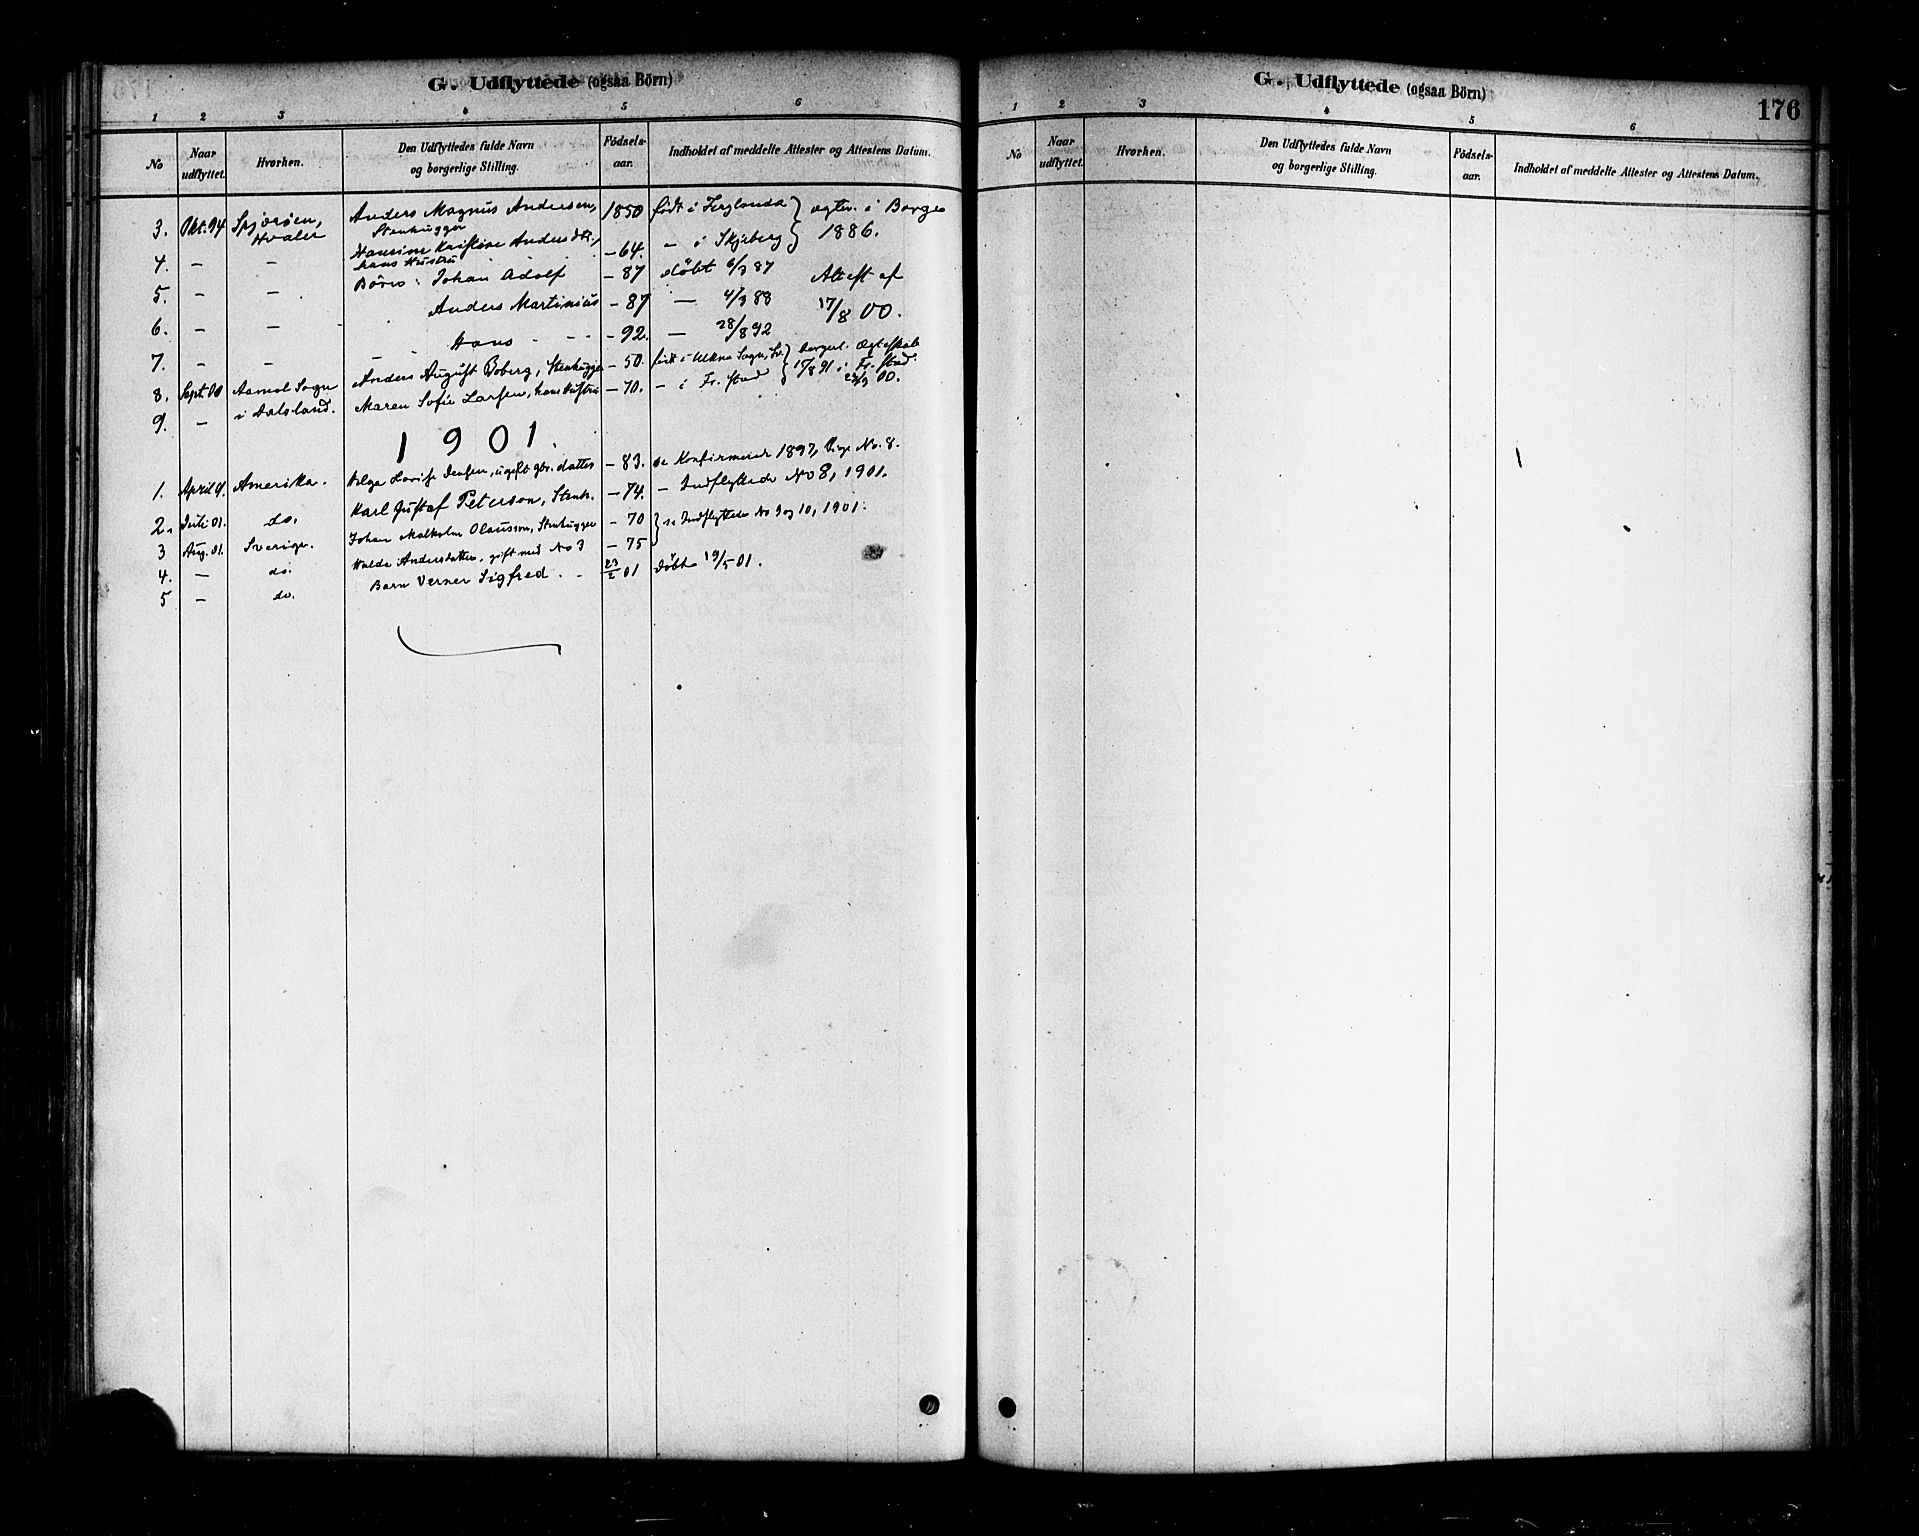 G. Udflyttede (ogsaa Börn)
1 2 3 4 5 6
No Naar udflyttet. Hvorhen. Den Udflyttedes fulde Navn og borgerlige Stilling. Födsels-aar. Indholdet af meddelte Attester og Attestens Datum.
3. Okt. 94 Spjærøen, Hvaler Anders Magnus Andersen, Stenhugger 1850 født i Ferglanda } ægtev. i Borge
4. — — Hansine Kristine Andersdtr., hans Hustru — 64. — i Skjeberg } 1886.
5. — — Børn: Johan Adolf — 87 døbt 6/3 87 Attest af
6. — — Anders Martinius — 87 — 4/3 88 17/8 00.
7. — — Hans — 92. — 28/8 92
8. Sept. 00 Aamol Sogn Anders August Boberg, Stenhugger — 50. født i Sogn, Sv. } borgerl. Ægteskab
9. — i Dalsland. Maren Sofie Larsen, hans Hustru — 70. — i Fr.stad } 15/8 91 i Fr.stad. 00.
1901.
1. April 01. Amerika. Helga Lovise Jensen, ugift gbr. datter — 83. se Konfirmerede 1897, Pige No. 8.
2. Juli 01. do. Karl Gustaf Peterson, Stenh. — 74. — Indflyttede No 8, 1901.
3 Aug. 01. Sverige. Johan Malkolm Olausson, Stenhugger — 70 } se Indflyttede No 9 og 10, 1901.
4. — do. Hulda Andersdatter, gift med No 3 — 75
5 — do. Barn Verner Sigfred 23/2 01 døbt 19/5 01.
G. Udflyttede (ogsaa Börn)
176
1 2 3 4 5 6
No Naar udflyttet. Hvorhen. Den Udflyttedes fulde Navn og borgerlige Stilling. Födsels-aar. Indholdet af meddelte Attester og Attestens Datum.